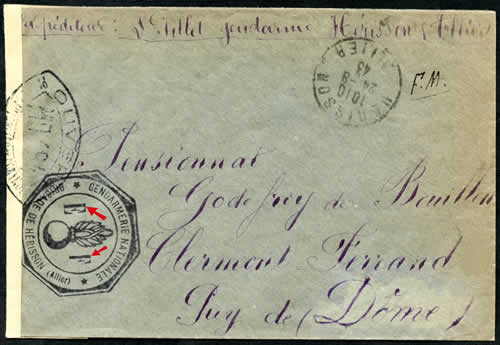 Expéditeur : Gendarme Hérisson (Allier)
HERISSON
ALLIER
1010
24-8
43
F.M.
OUV
Pensionnat
Godefroy de Bouillon
Clermont Ferrand
Puy de (Dôme)
GENDARMERIE NATIONALE
BRIGADE DE HÉRISSON (Allier)
E F